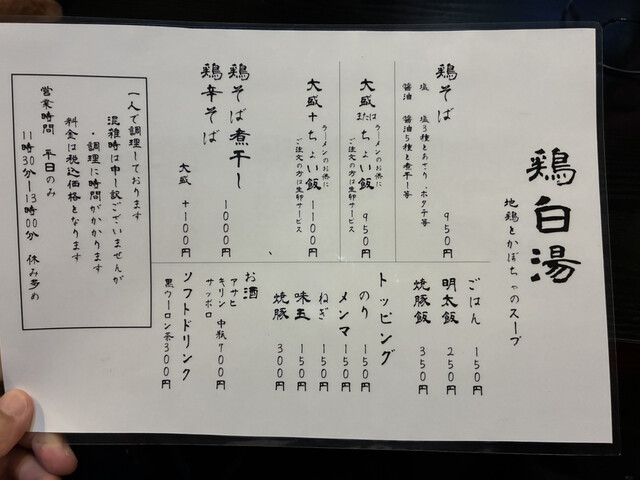 鶏白湯
地鶏とかぼちゃのスープ
鶏そば
塩 塩3種とあさり、ホタテ等
醤油 醤油5種と煮干し等
950円
大盛またはちょい飯 950円
ラーメンのお供に
ご注文の方は生卵サービス
大盛+ちょい飯 1100円
ラーメンのお供に
ご注文の方は生卵サービス
鶏そば煮干し 1000円
鶏辛そば
大盛 +100円
ごはん 150円
明太飯 250円
焼豚飯 350円
トッピング
のり 150円
メンマ 150円
ねぎ 150円
味玉 150円
焼豚 300円
お酒
アサヒ
キリン 中瓶700円
サッポロ
ソフトドリンク
黒ウーロン茶300円
一人で調理しております
混雑時は申し訳ございませんが
・調理に時間がかかります
料金は税込価格となります
営業時間 平日のみ
11時30分ー13時00分 休み多め